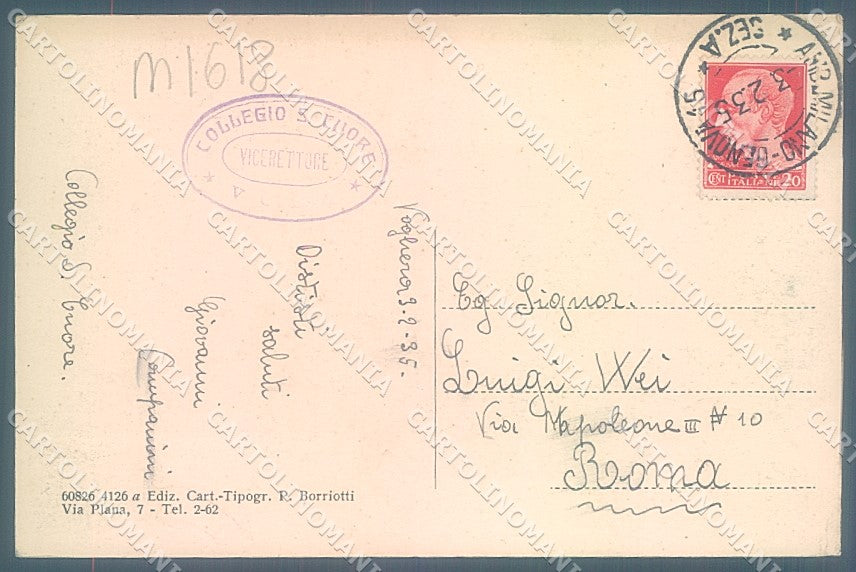 m1618
COLLEGIO S. CUORE
VICERETTORE
AMB. MILANO-GENOVA 15
SEZ. A
3.2.35
CENT
ITALIANE 20
Voghera 3-2-35.
Distinti
saluti
Giovanni
Collegio S. Cuore.
Eg Signor.
Luigi Wei
Via Napoleone III N 10
Roma
60826 4126 a Ediz. Cart.-Tipogr. P. Borriotti
Via Plana, 7 - Tel. 2-62
CARTOLINOMANIA